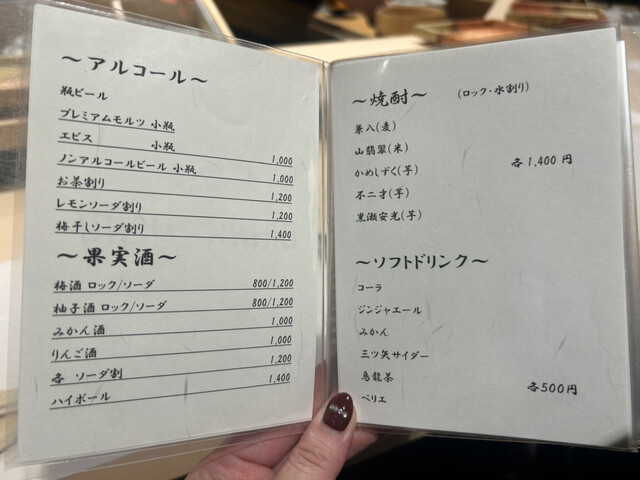 ～アルコール～
瓶ビール
プレミアムモルツ 小瓶
エビス 小瓶 1,000
ノンアルコールビール 小瓶 1,000
お茶割り 1,200
レモンソーダ割り 1,200
梅干しソーダ割り 1,400
～果実酒～
梅酒 ロック/ソーダ 800/1,200
柚子酒 ロック/ソーダ 800/1,200
みかん酒 1,000
りんご酒 1,000
各 ソーダ割 1,200
ハイボール 1,400
～焼酎～ (ロック・水割り)
兼八(麦)
山翡翠(米)
かめしずく(芋) 各1,400 円
不二才(芋)
黒瀬安光(芋)
～ソフトドリンク～
コーラ
ジンジャエール
みかん
三ツ矢サイダー
烏龍茶 各500円
ペリエ